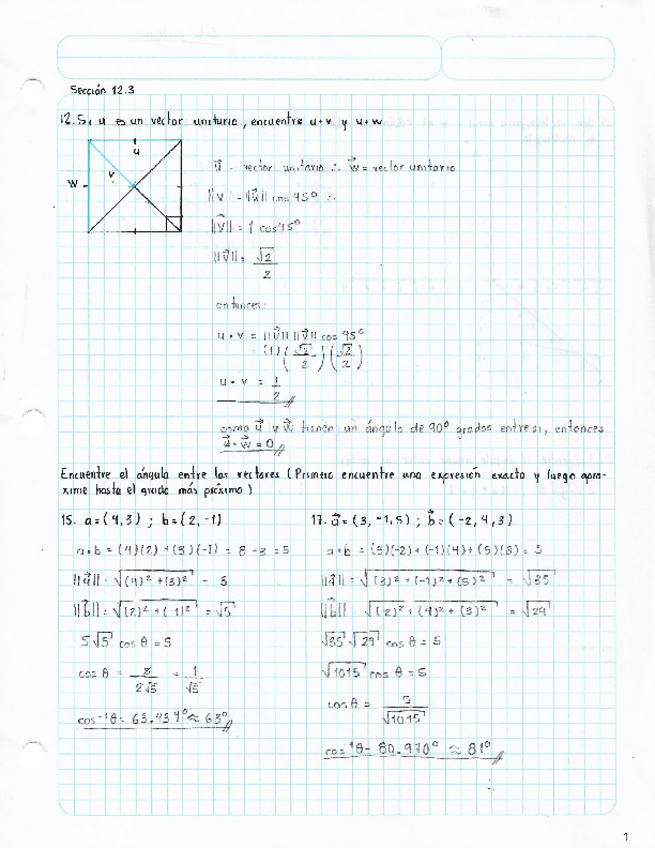 Sección 12.3
12. Si u es un vector unitario, encuentre u·v y u·w
u
v
W
u⃗ = vector unitario ∴ w⃗ = vector unitario
||v|| = ||u⃗|| cos 45° ∴
||v⃗|| = 1 cos 45°
||v⃗|| = √2/2
entonces:
u·v = ||u⃗|| ||v⃗|| cos 45°
= (1)(√2/2)(√2/2)
u·v = 1/2
como u⃗ y w⃗ tienen un ángulo de 90° grados entre si, entonces
u⃗·w⃗ = 0
Encuentre el ángulo entre los vectores (Primero encuentre una expresión exacta y luego apro-
xime hasta el grado más próximo)
15. a=(4,3) ; b=(2,-1)
a·b = (4)(2) + (3)(-1) = 8 - 3 = 5
||a⃗|| = √(4)² + (3)² = 5
||b⃗|| = √(2)² + (-1)² = √5
5√5 cos θ = 5
cos θ = = 1/√5
cos⁻¹ θ = 63.434° ≈ 63°
17. a⃗ = (3, -1, 5) ; b⃗ = (-2, 4, 3)
a·b = (3)(-2) + (-1)(4) + (5)(3) = 5
||a⃗|| = √(3)² + (-1)² + (5)² = √35
||b⃗|| = √(2)² + (4)² + (3)² = √29
√35 √29 cos θ = 5
√1015 cos θ = 5
cos θ = 5/√1015
cos⁻¹ θ = 80.970° ≈ 81°
1